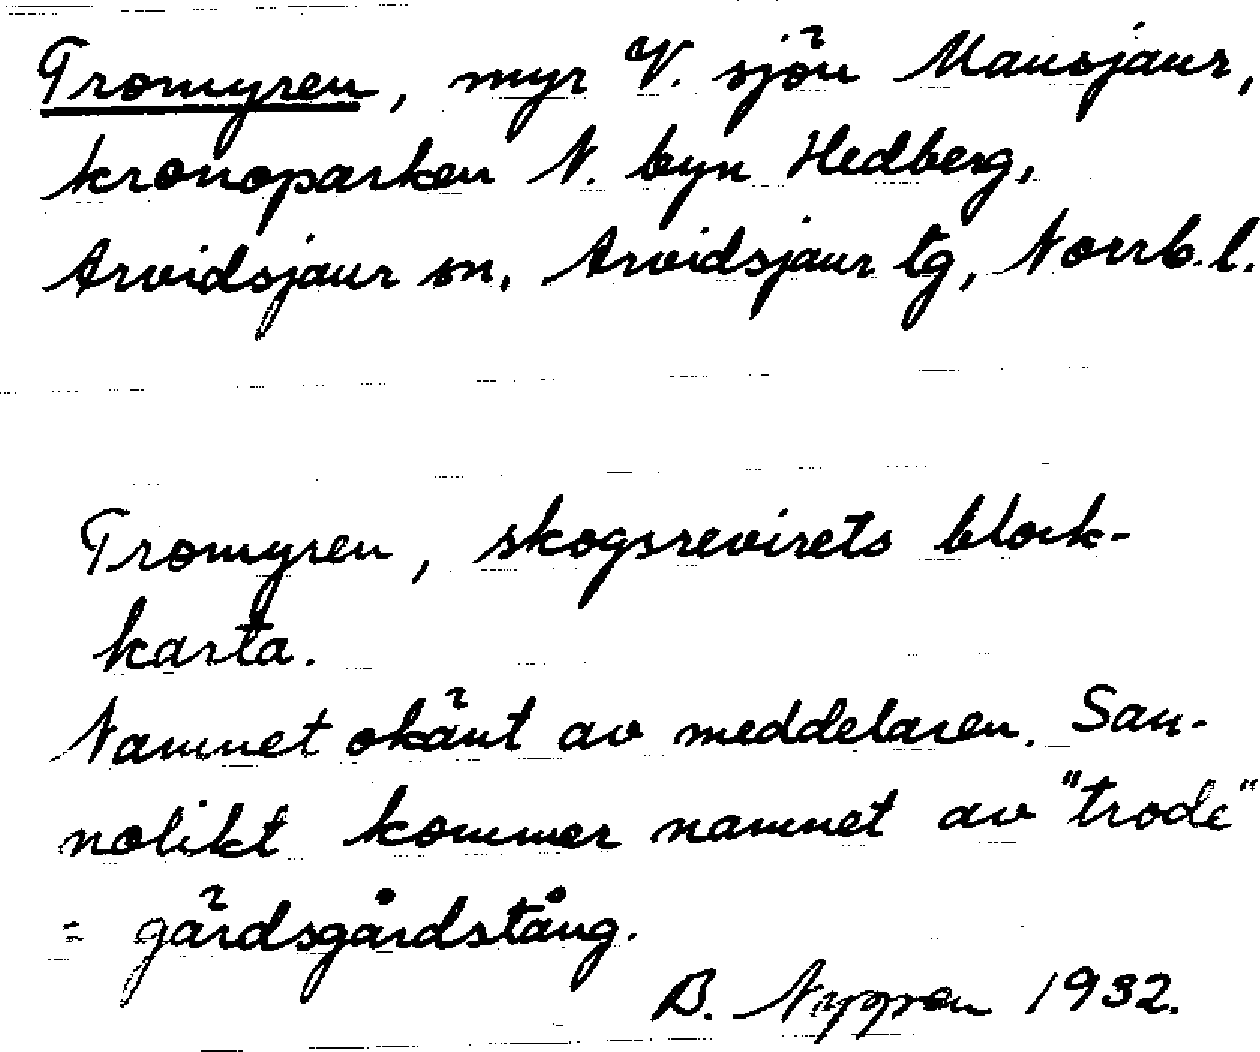 Tromyren, myr V. sjön Mausjaur,
kronoparken N. byn Hedberg,
Arvidsjaur sn, Arvidsjaur tg, Norrb.l.
Tromyren, skogsrevirets block-
karta.
Namnet okänt av meddelaren. San-
nolikt kommer namnet av "trode"
= gärdsgårdstång.
B. 1932.